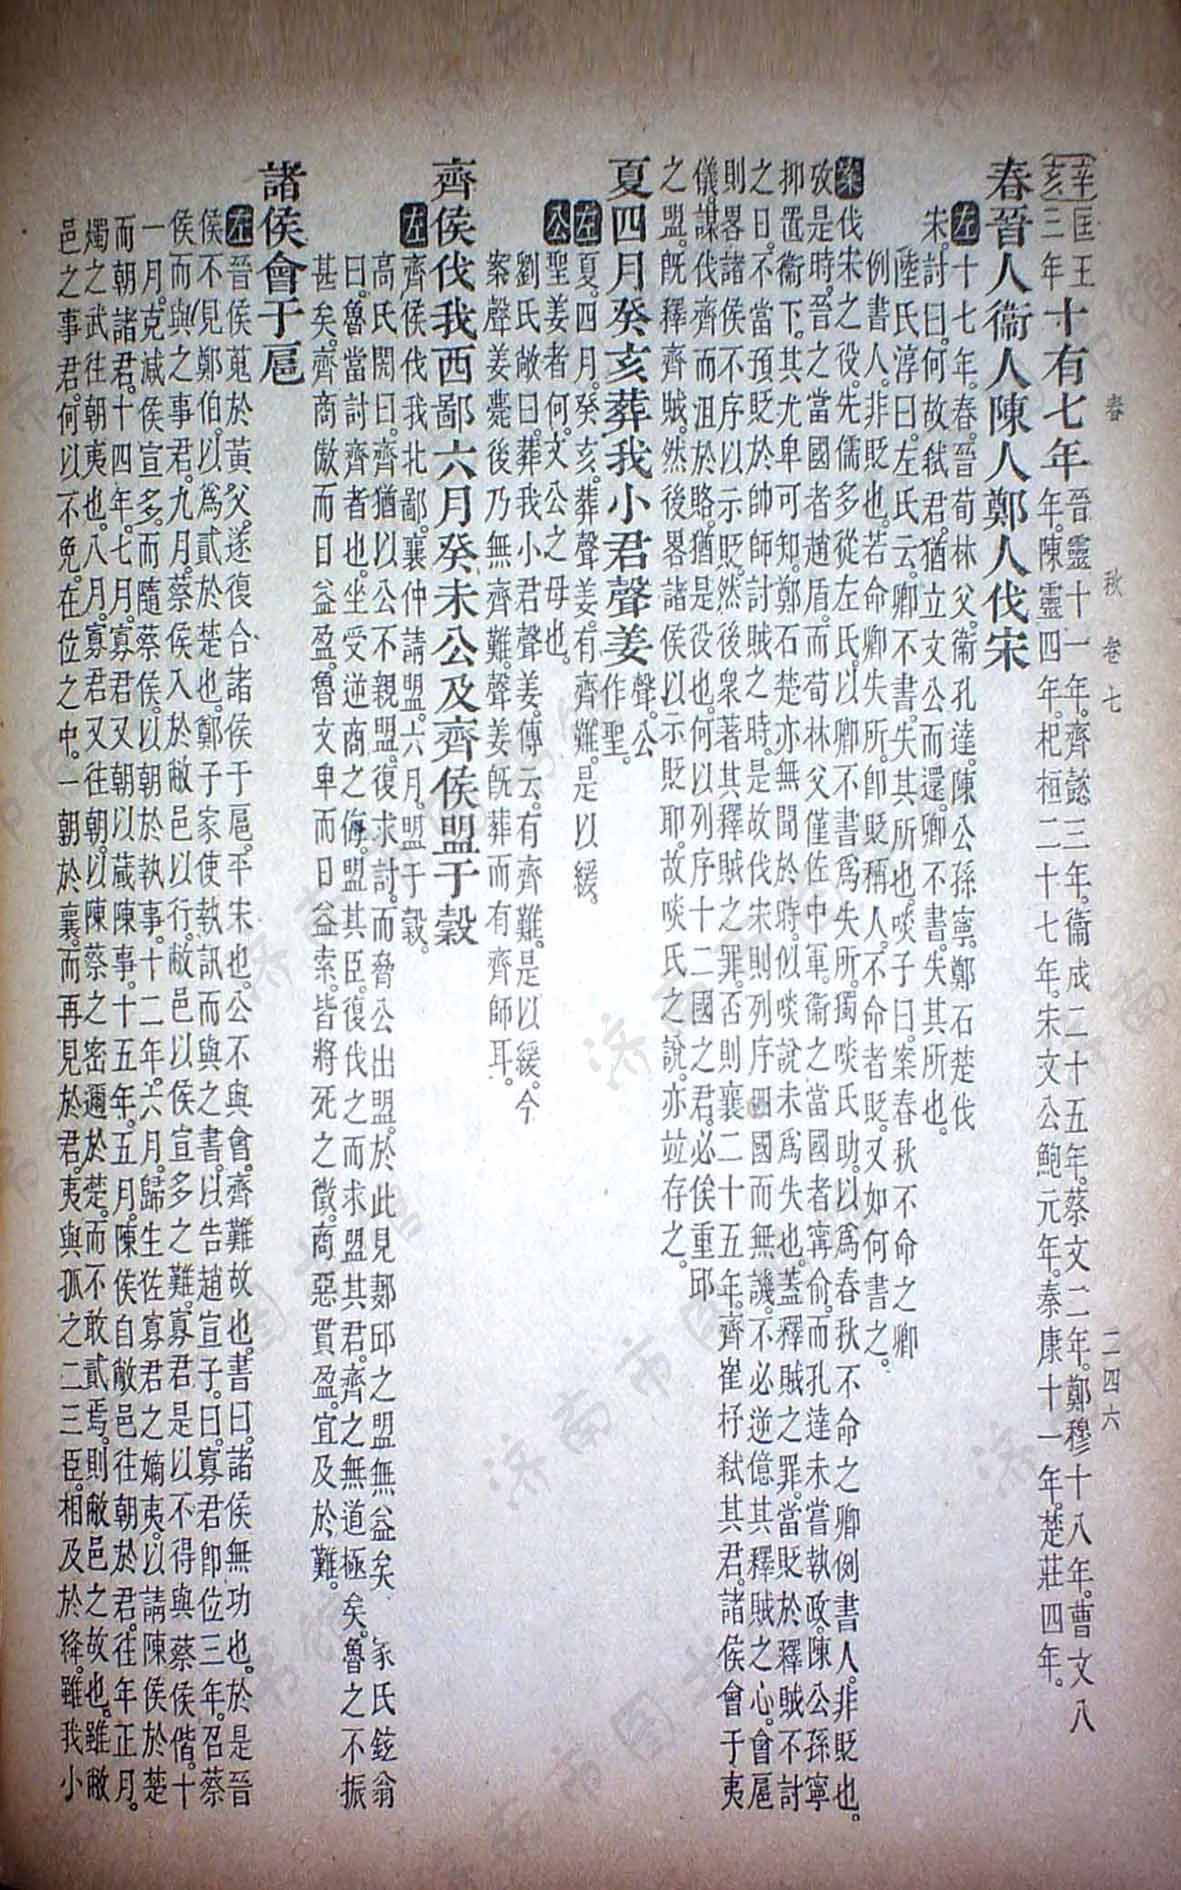 春 秋 卷七 二四六
辛亥 匡王三年 十有七年 晉靈十一年。齊懿三年。衞成二十五年。蔡文二年。鄭穆十八年。曹文八年。陳靈四年。杞桓二十七年。宋文公鮑元年。秦康十一年。楚莊四年。
春晉人衞人陳人鄭人伐宋
左十七年。春。晉荀林父。衞孔達。陳公孫寧。鄭石楚伐
宋。討曰。何故弒君。猶立文公而還。卿不書。失其所也。
陸氏淳曰。左氏云。卿不書。失其所也。啖子曰。案春秋不命之卿
例書人。非貶也。若命卿失所。卽貶稱人。不命者貶。又如何書之。
案伐宋之役。先儒多從左氏。以卿不書爲失所。獨啖氏助。以爲春秋不命之卿例書人。非貶也。
攷是時。晉之當國者趙盾。而荀林父僅佐中軍。衞之當國者甯俞。而孔達未嘗執政。陳公孫寧
抑置衞下。其尤卑可知。鄭石楚亦無聞於時。似啖說未爲失也。蓋釋賊之罪。當貶於釋賊不討
之日。不當預貶於帥師討賊之時。是故伐宋則列序四國而無譏。不必逆億其釋賊之心。會扈
則畧諸侯不序以示貶。然後衆著其釋賊之罪。否則襄二十五年。齊崔杼弒其君。諸侯會于夷
儀。謀伐齊而沮於賂。猶是役也。何以列序十二國之君。必俟重邱
之盟。旣釋齊賊。然後畧諸侯以示貶耶。故啖氏之說。亦竝存之。
夏四月癸亥葬我小君聲姜 聲。公作聖。
左夏。四月。癸亥。葬聲姜。有齊難。是以緩。
公聖姜者何。文公之母也。
劉氏敞曰。葬我小君聲姜。傳云。有齊難。是以緩。今
案聲姜薨後乃無齊難。聲姜旣葬而有齊師耳。
齊侯伐我西鄙六月癸未公及齊侯盟于穀
左齊侯伐我北鄙。襄仲請盟。六月。盟于穀。
高氏閌曰。齊猶以公不親盟。復求討。而脅公出盟。於此見鄭邱之盟無益矣 家氏鉉翁
曰。魯當討齊者也。坐受逆商之侮。盟其臣。復伐之而求盟其君。齊之無道極矣。魯之不振
甚矣。齊商傲而日益盈。魯文卑而日益索。皆將死之徵。商惡貫盈。宜及於難。
諸侯會于扈
左晉侯蒐於黃父。遂復合諸侯于扈。平宋也。公不與會。齊難故也。書曰。諸侯無功也。於是晉
侯不見鄭伯。以爲貳於楚也。鄭子家使執訊而與之書。以告趙宣子。曰。寡君卽位三年。召蔡
侯而與之事君。九月。蔡侯入於敝邑以行。敝邑以侯宣多之難。寡君是以不得與蔡侯偕。十
一月。克減侯宣多。而隨蔡侯。以朝於執事。十二年。六月。歸生佐寡君之嫡夷。以請陳侯於楚
而朝諸君。十四年。七月。寡君又朝以蕆陳事。十五年。五月。陳侯自敝邑往朝於君。往年正月。
燭之武往朝夷也。八月。寡君又往朝。以陳蔡之密邇於楚。而不敢貳焉。則敝邑之故也。雖敝
邑之事君。何以不免。在位之中。一朝於襄。而再見於君。夷與孤之二三臣。相及於絳。雖我小